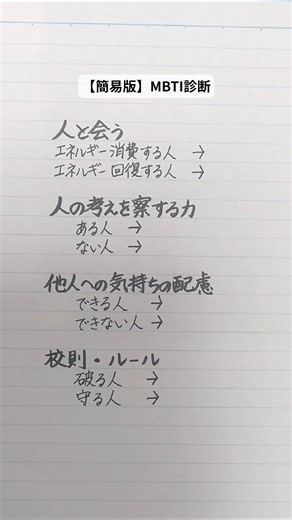 【簡易版】MBTI診断
人と会う
エネルギー消費する人 →
エネルギー回復する人 →
人の考えを察する力
ある人 →
ない人 →
他人への気持ちの配慮
できる人 →
できない人 →
校則・ルール
破る人 →
守る人 →